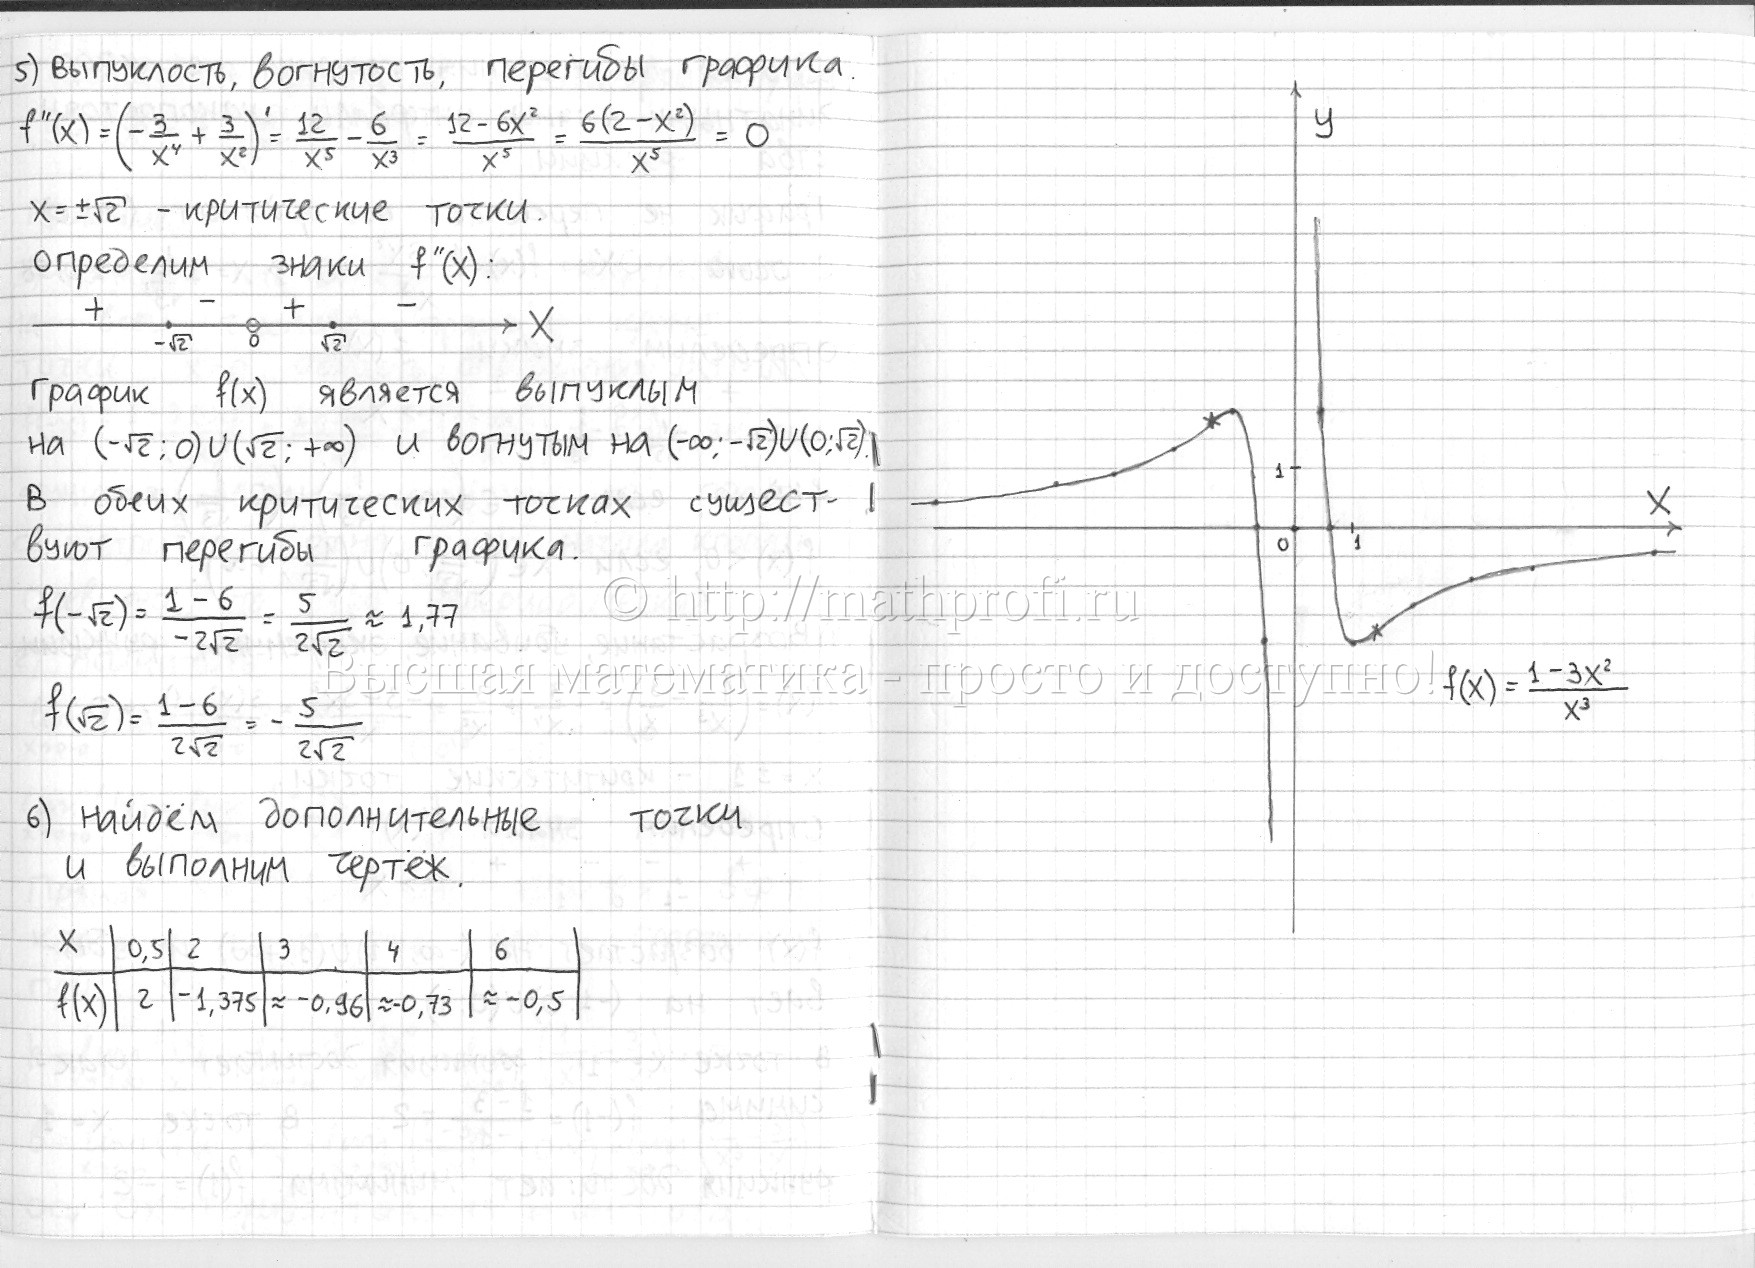 5) Выпуклость, вогнутость, перегибы графика.
f''(x) = (-3/x⁴ + 3/x²)' = 12/x⁵ - 6/x³ = (12-6x²)/x⁵ = 6(2-x²)/x⁵ = 0
x=±√2 - критические точки.
Определим знаки f''(x):
+ - + -
-√2 0 √2 X
График f(x) является выпуклым
на (-√2; 0)∪(√2; +∞) и вогнутым на (-∞; -√2)∪(0; √2).
В обеих критических точках сущест-
вуют перегибы графика.
f(-√2) = (1-6)/(-2√2) = 5/(2√2) ≈ 1,77
f(√2) = (1-6)/(2√2) = -5/(2√2)
6) Найдём дополнительные точки
и выполним чертёж.
x | 0,5 | 2 | 3 | 4 | 6
f(x) | 2 | -1,375 | ≈ -0,96 | ≈-0,73 | ≈ -0,5
y
1
X
0 1
f(x) = (1-3x²)/x³
© http://mathprofi.ru
Высшая математика - просто и доступно!